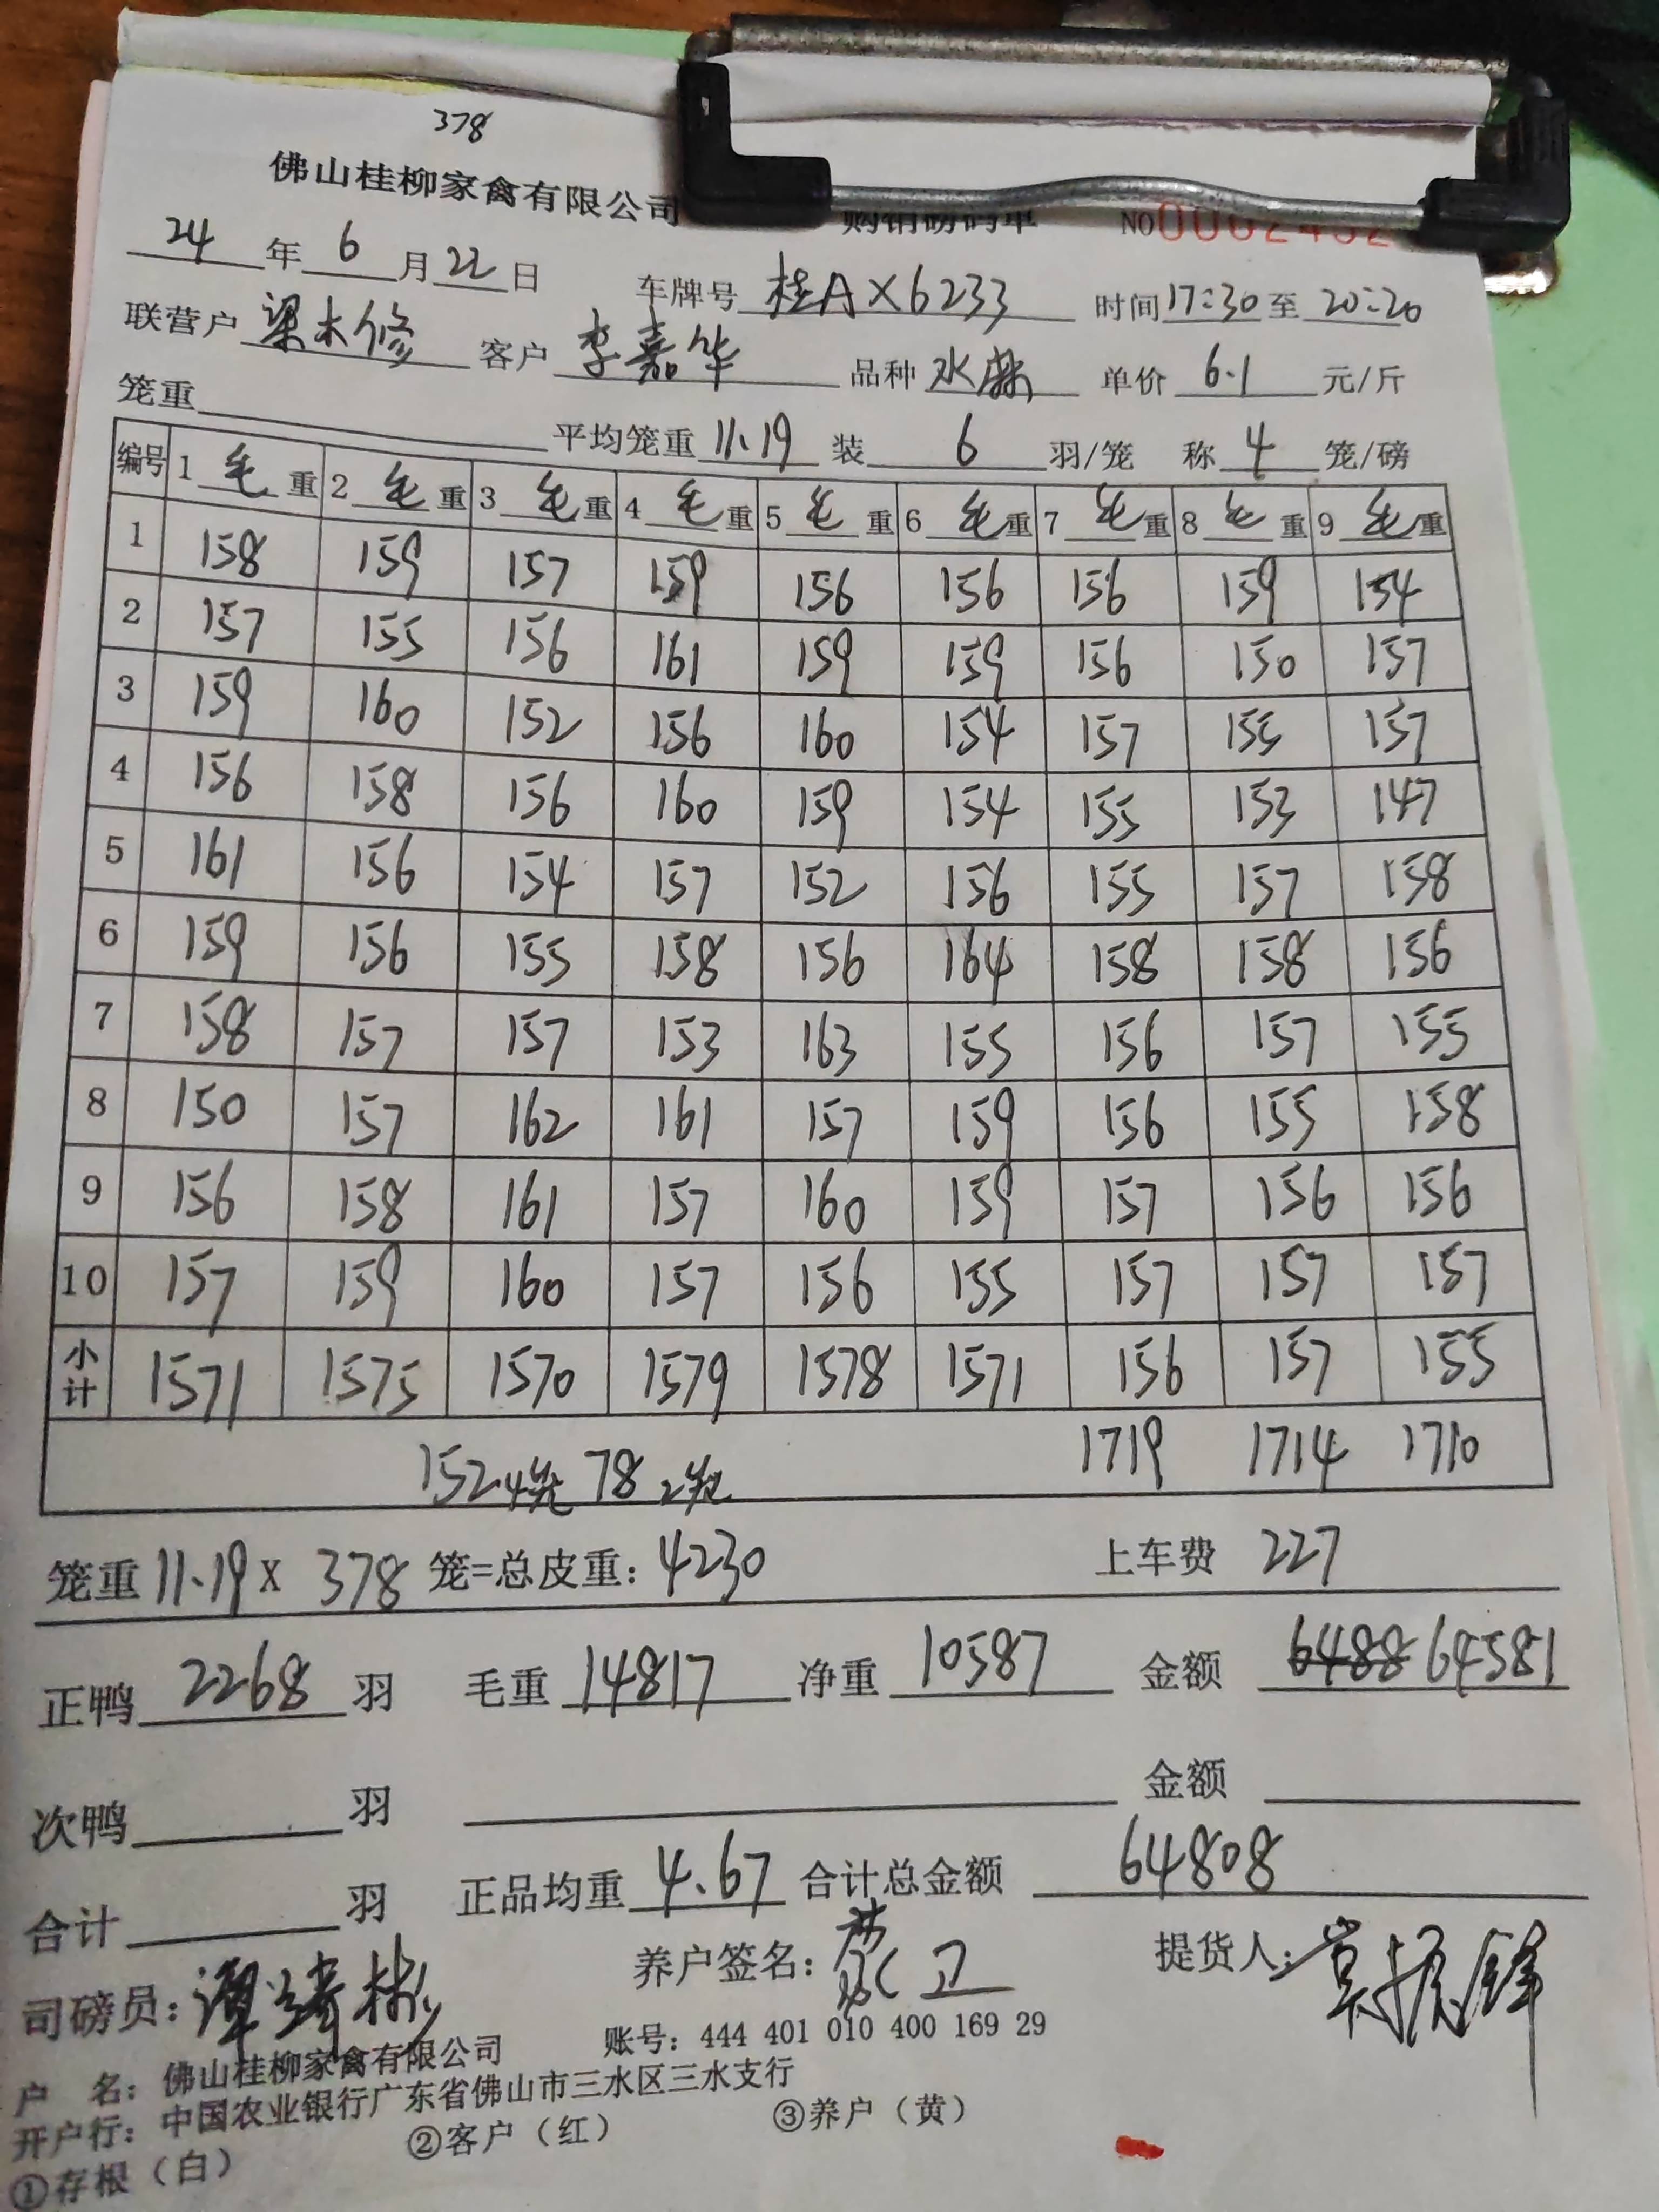 378
佛山桂柳家禽有限公司 购销磅码单 NO
24年6月22日 车牌号 桂AX6233 时间17:30至20:20
联营户 梁木修 客户 李嘉华 品种 水鸭 单价 6.1 元/斤
笼重 平均笼重 11.19 装 6 羽/笼 称 4 笼/磅
编号 1 毛 重 2 毛 重 3 毛 重 4 毛 重 5 毛 重 6 毛 重 7 毛 重 8 毛 重 9 毛 重
1 158 159 157 159 156 156 156 159 154
2 157 155 156 161 159 159 156 150 157
3 159 160 152 156 160 154 157 155 157
4 156 158 156 160 159 154 155 153 147
5 161 156 154 157 152 156 155 157 158
6 159 156 155 158 156 164 158 158 156
7 158 157 157 153 163 155 156 157 155
8 150 157 162 161 157 159 156 155 158
9 156 158 161 157 160 159 157 156 156
10 157 159 160 157 156 155 157 157 157
小计 1571 1575 1570 1579 1578 1571 156 157 155
152 4笼 78 2笼 1719 1714 1710
笼重 11.19 X 378 笼=总皮重: 4230 上车费 227
正鸭 2268 羽 毛重 14817 净重 10587 金额 6488 64581
次鸭 羽 金额
合计 羽 正品均重 4.67 合计总金额 64808
司磅员: 养户签名: 提货人:
户 名: 佛山桂柳家禽有限公司 账号: 444 401 010 400 169 29
开户行: 中国农业银行广东省佛山市三水区三水支行
①存根（白） ②客户（红） ③养户（黄）